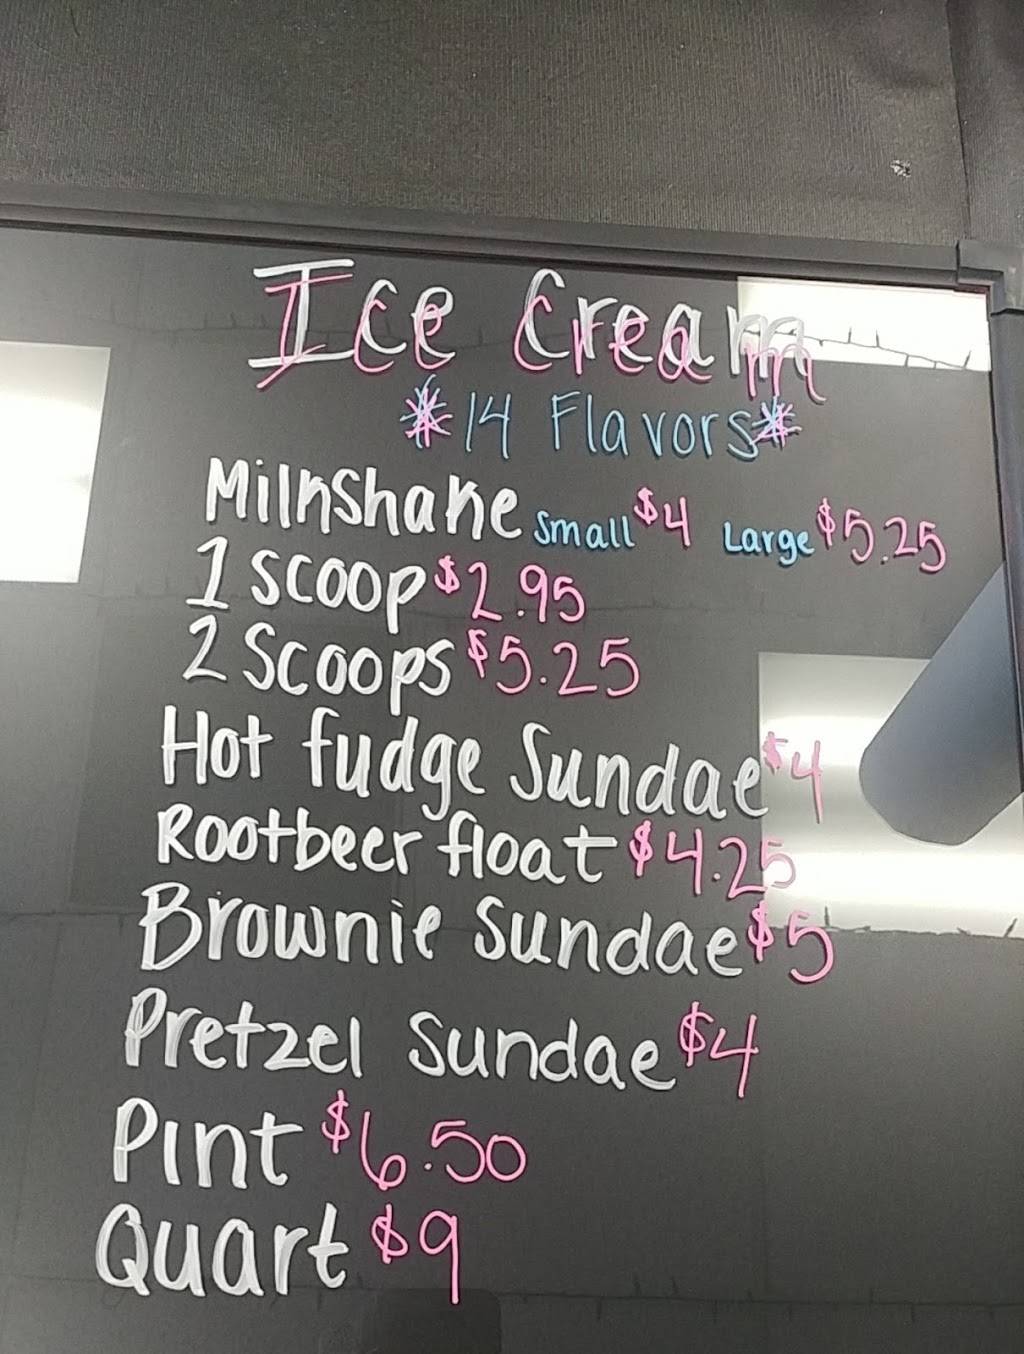 Ice Cream
*14 Flavors*
Milkshake Small $4 Large $5.25
1 Scoop $2.95
2 Scoops $5.25
Hot fudge Sundae $4
Rootbeer float $4.25
Brownie Sundae $5
Pretzel Sundae $4
Pint $6.50
Quart $9